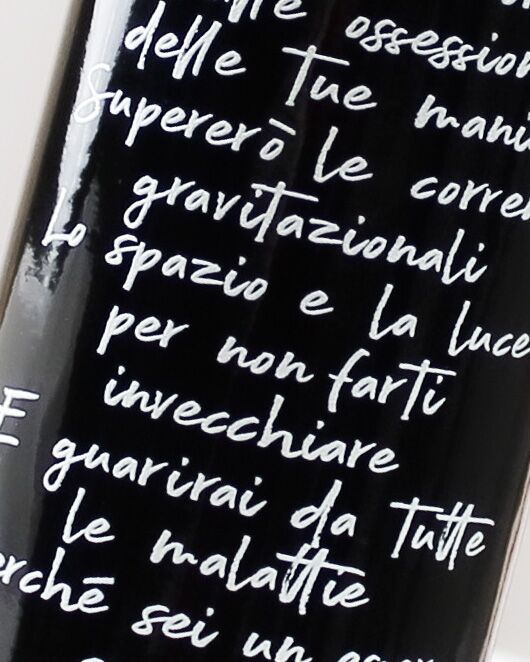 ossession
delle tue mani
Supererò le corren
gravitazionali
Lo spazio e la luce
per non farti
invecchiare
E guarirai da tutte
le malattie
erché sei un